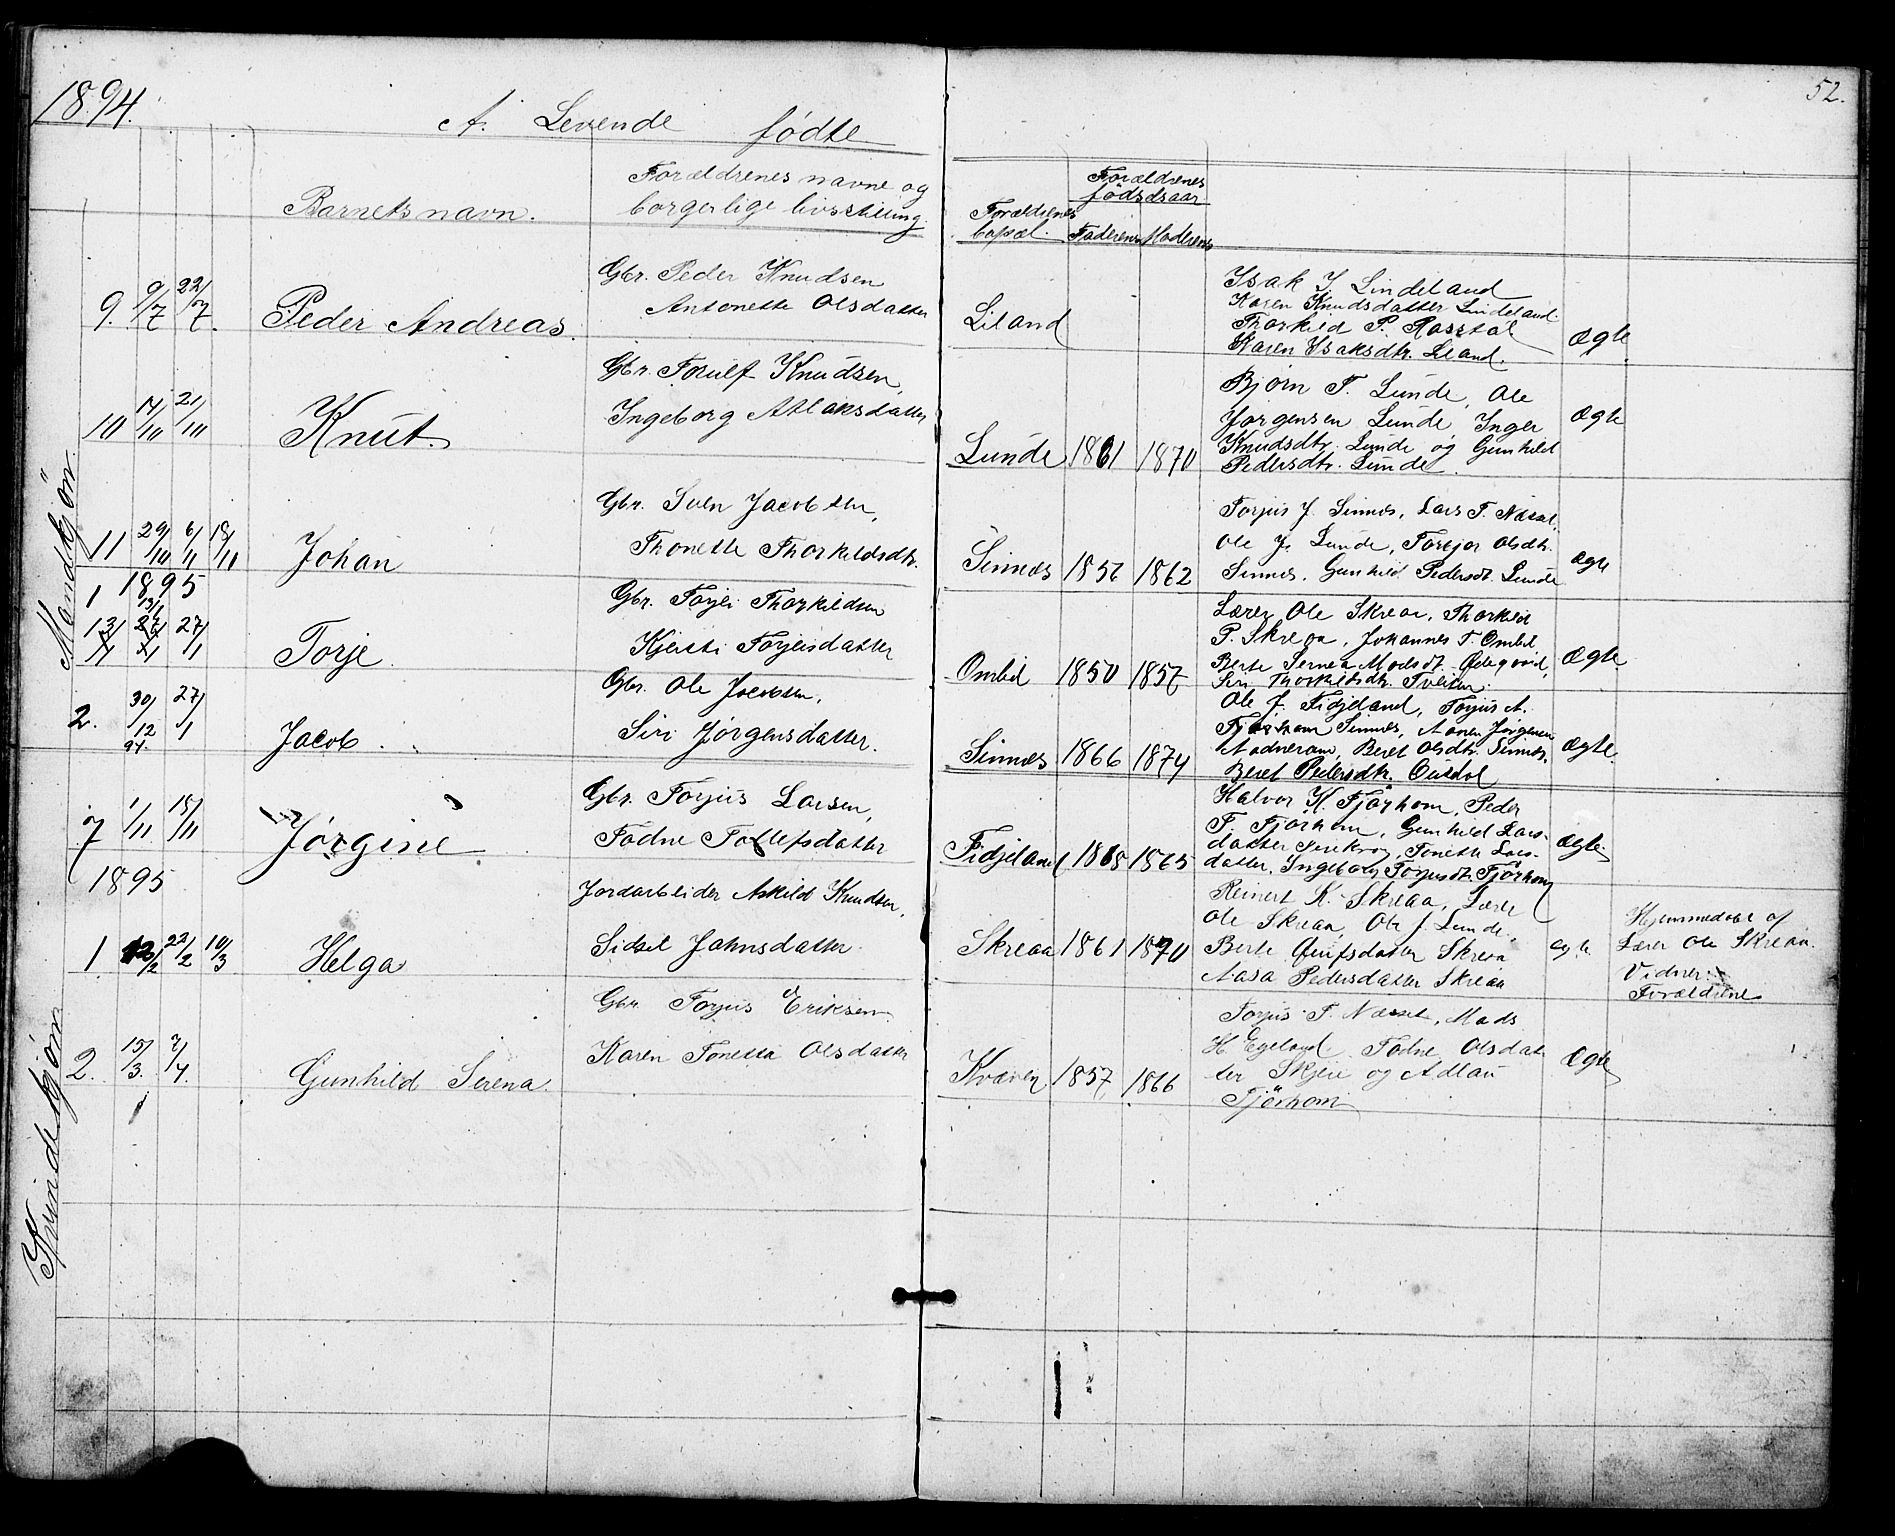 1894.
52.
A. Levende fødte
Barnets navn.
Forældrenes navne og
borgerlige livsstilling.
Forældrenes
bopæl.
Forældrenes
fødselsaar
Faderens Moderens
Mandkjön.
9. 9/7 22/7. Peder Andreas.
Gbr. Peder Knudsen
Antonette Olsdatter
Liland
Isak I Lindeland
Karen Knudsdatter Lindeland.
Thorkild P.
Karen Isaksdtr. Liland.
Ægte
10 14/10 21/10 Knut.
Gbr. Torulf Knudsen,
Ingeborg Atlaksdatter
Lunde 1861 1870
Bjørn T. Lunde, Ole
Jørgensen Lunde, Inger
Knudsdtr. Lunde og Gunhild
Pedersdtr. Lunde.
Ægte
11 29/10 6/11 18/11 Johan
Gbr. Sven Jacobsen,
Thonette Thorkildsdtr.
Sinnes 1856 1862
Torjus J. Sinnes, Lars T. Næset.
Ole J. Lunde, Torbjør Olsdtr.
Sinnes, Gunhild Pedersdt. Lunde
Ægte
1 1895
13/1 27/1 Torje.
Gbr. Torjei Thorkildsen
Kjersti Torjeisdatter
Omlid 1850 1857
Lærer Ole Skreaa, Thorkild
P. Skreaa, Johannes T. Omlid
Berte Serina Madsdt. Ødegaard,
Siri Thorkildsdtr. Tveiten.
Ægte
2. 30/12 94 27/1 Jacob.
Gbr. Ole Jacobsen,
Siri Jørgensdatter.
Sinnes 1866 1874
Ole J. Fidjeland, Torjus A.
Fjørhom Sinnes, Aanen Jørgensen
Aadneram, Beret Olsdtr. Sinnes,
Beret Pedersdtr. Ousdal
Ægte
Kvindekjön
7 1/11 18/11 Jørgine
Gbr. Torjus Larsen,
Todne Tollefsdatter
Fidjeland 1865 1865
Halvor K. Fjørhom, Peder
T. Fjørhom, Gunhild Lars-
datter, Tonette Lars-
datter, Ingeborg Torjusdt. Fjørhom
Ægte.
1895
1. 12/2 22/2 10/3 Helga
Jordarbeider Askild Knudsen,
Sidsel Johnsdatter.
Skreaa 1861 1870
Reinert K. Skreaa, Lærer
Ole Skreaa, Ole J. Lunde.
Berte Skreaa
Aasa Pedersdatter Skreaa
Ægte
Hjemmedøbt af
Lærer Ole Skreaa.
Vidner:
Forældrene
2. 15/3. 7/4. Gunhild Serena.
Gbr Torjus Eriksen.
Karen Tonetta Olsdatter
Kvæven 1857 1866
Torjus T. Næset, Mads
H Egeland Todne Olsdat
ter Skjeie og Adlau
Fjörhom
Ægte